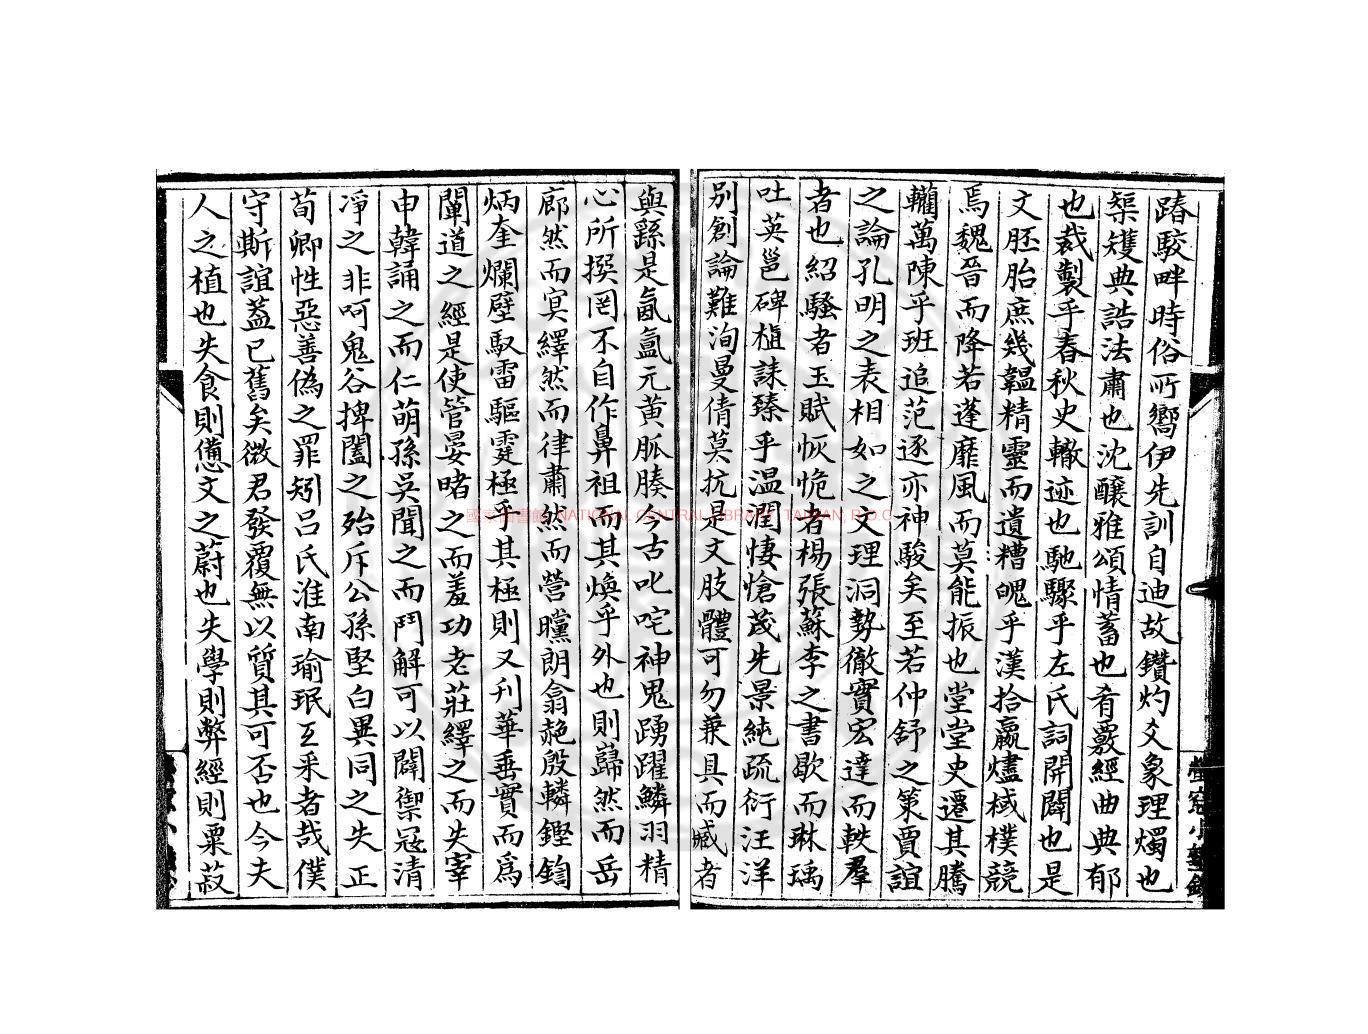 踳駮畔時俗所嚮伊先訓自迪故鑽灼爻象理燭也
榘矱典誥法肅也沈釀雅頌情蓄也肴覈經曲典郁
也裁製乎春秋史轍迹也馳驟乎左氏詞開闢也是
文胚胎庶幾韞精靈而遺糟魄乎漢拾嬴燼棫樸競
焉魏晉而降若蓬靡風而莫能振也堂堂史遷其騰
轥萬陳乎班追范逐亦神駿矣至若仲舒之策賈誼
之論孔明之表相如之文理洞勢徹實宏達而軼羣
者也紹騷者玉賦恢恑者楊張蘇李之書歇而琳瑀
吐英邕碑植誄臻乎温潤悽愴茂先景純疏衍汪洋
別創論難洵曼倩莫抗是文肢體可勿兼具而臧者
與繇是氤氳元黄脈腠今古叱咤神鬼踴躍鱗羽精
心所撰罔不自作鼻祖而其煥乎外也則巋然而岳
廊然而㝠繹然而律肅然而營曭朗翕赩殷轔鏗鍧
炳奎爛壁馭雷驅霆極乎其極則又刋華埀實而爲
闡道之經是使管晏睹之而羞功老莊繹之而失宰
申韓誦之而仁萌孫吳聞之而鬥解可以闢禦冦清
凈之非呵鬼谷捭闔之殆斥公孫堅白異同之失正
荀卿性惡善偽之罪矧呂氏淮南瑜珉互采者哉僕
守斯誼蓋已舊矣微君發覆無以質其可否也今夫
人之植也失食則憊文之蔚也失學則弊經則粟菽
國家圖書館 NATIONAL CENTRAL LIBRARY, TAIWAN, R.O.C.